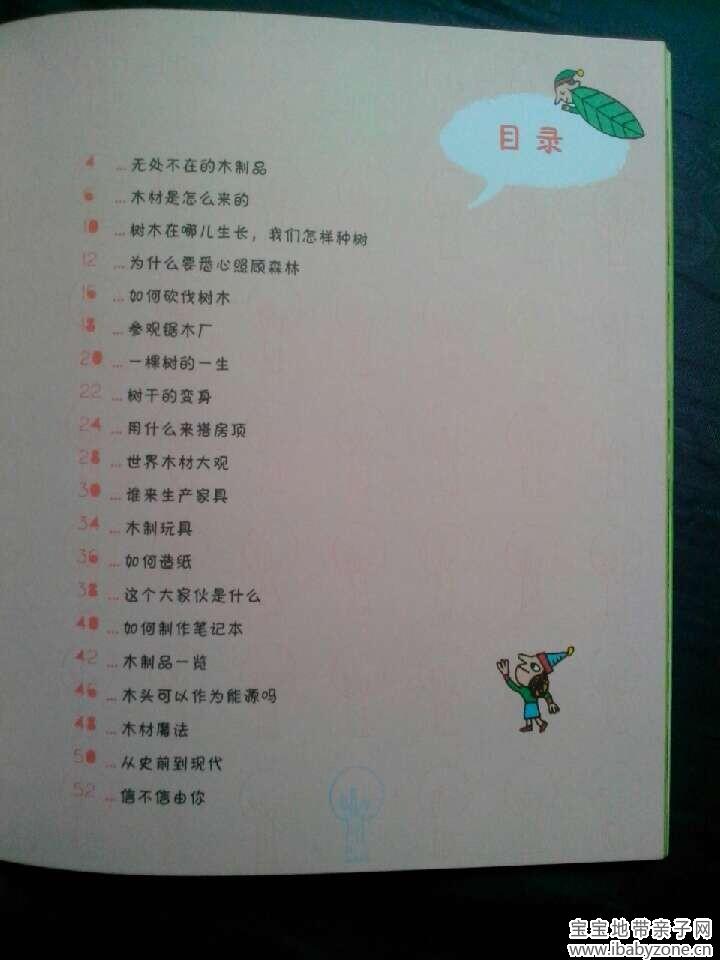 目录
4 ...无处不在的木制品
6 ...木材是怎么来的
10 ...树木在哪儿生长，我们怎样种树
12 ...为什么要悉心照顾森林
16 ...如何砍伐树木
18 ...参观锯木厂
20 ...一棵树的一生
22 ...树干的变身
24 ...用什么来搭房顶
28 ...世界木材大观
30 ...谁来生产家具
34 ...木制玩具
36 ...如何造纸
38 ...这个大家伙是什么
40 ...如何制作笔记本
42 ...木制品一览
46 ...木头可以作为能源吗
48 ...木材魔法
50 ...从史前到现代
52 ...信不信由你
宝宝地带亲子网
www.ibabyzone.cn